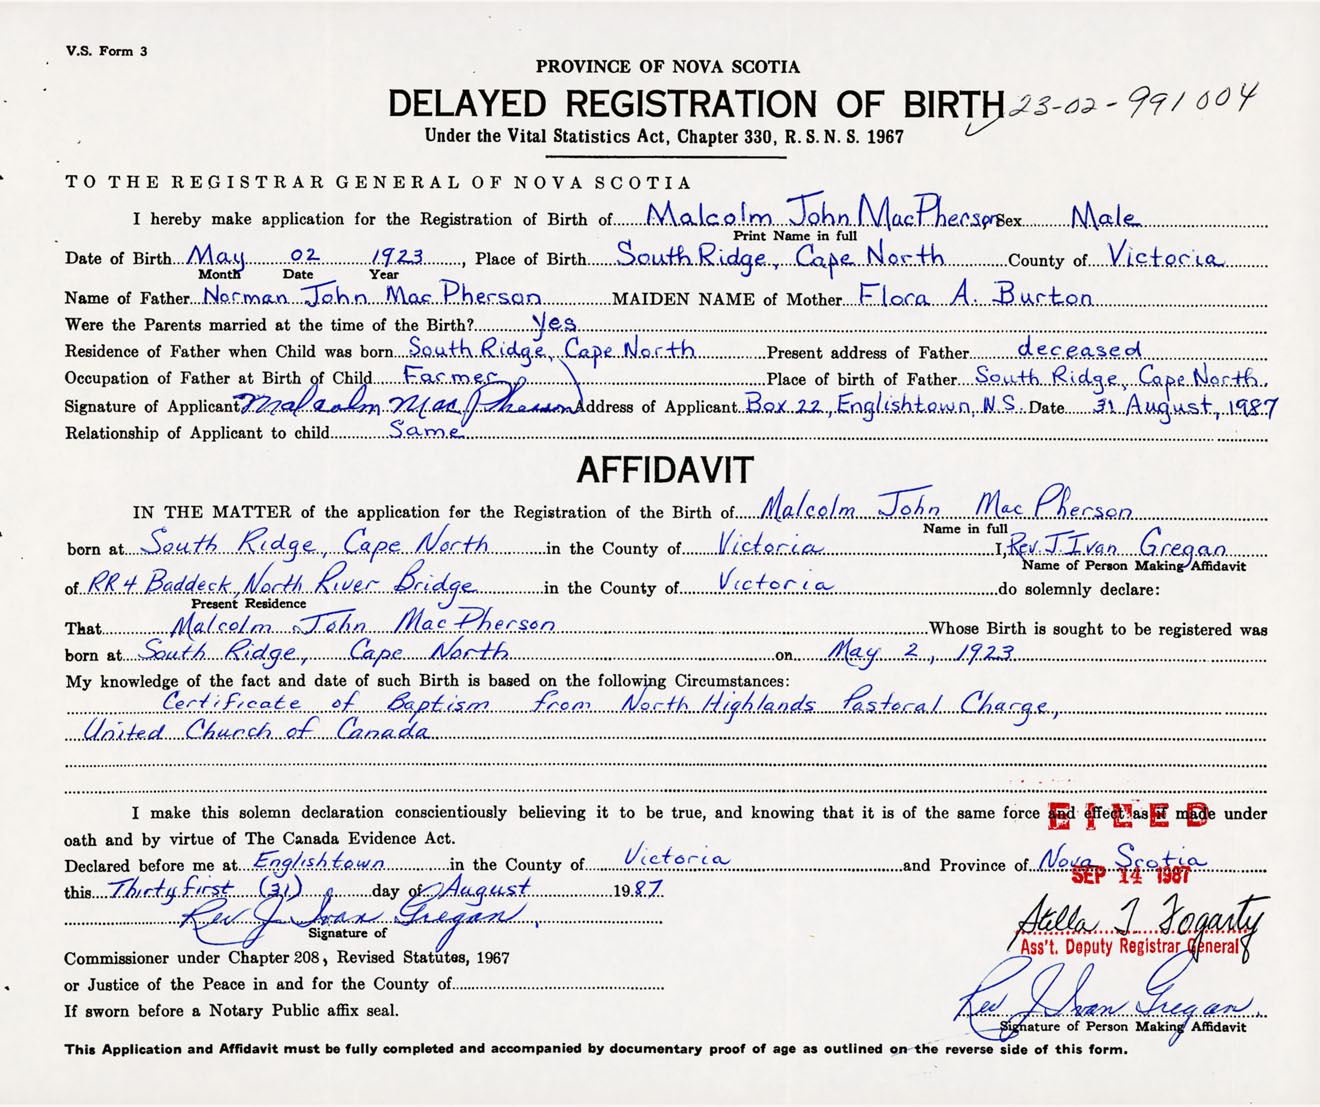 V.S. Form 3
PROVINCE OF NOVA SCOTIA
DELAYED REGISTRATION OF BIRTH 23-02-991004
Under the Vital Statistics Act, Chapter 330, R. S. N. S. 1967
TO THE REGISTRAR GENERAL OF NOVA SCOTIA
I hereby make application for the Registration of Birth of Malcolm John MacPherson Sex Male
Print Name in full
Date of Birth May 02 1923, Place of Birth South Ridge, Cape North County of Victoria
Month Date Year
Name of Father Norman John MacPherson MAIDEN NAME of Mother Flora A. Burton
Were the Parents married at the time of the Birth? Yes
Residence of Father when Child was born South Ridge, Cape North Present address of Father deceased
Occupation of Father at Birth of Child Farmer Place of birth of Father South Ridge, Cape North.
Signature of Applicant Malcolm MacPherson Address of Applicant Box 22, Englishtown, N.S. Date 31 August, 1987
Relationship of Applicant to child Same
AFFIDAVIT
IN THE MATTER of the application for the Registration of the Birth of Malcolm John MacPherson
Name in full
born at South Ridge, Cape North in the County of Victoria I, Rev. J. Ivan Gregan
Name of Person Making Affidavit
of RR4 Baddeck, North River Bridge in the County of Victoria do solemnly declare:
Present Residence
That Malcolm John MacPherson Whose Birth is sought to be registered was
born at South Ridge, Cape North on May 2, 1923
My knowledge of the fact and date of such Birth is based on the following Circumstances:
Certificate of Baptism from North Highlands Pastoral Charge,
United Church of Canada
I make this solemn declaration conscientiously believing it to be true, and knowing that it is of the same force and effect as if made under
FILED
oath and by virtue of The Canada Evidence Act.
Declared before me at Englishtown in the County of Victoria and Province of Nova Scotia
SEP 14 1987
this Thirty first (31) day of August 1987
Rev J Ivan Gregan
Signature of
Stella T Fogarty
Ass't. Deputy Registrar General
Commissioner under Chapter 208, Revised Statutes, 1967
or Justice of the Peace in and for the County of
If sworn before a Notary Public affix seal.
Rev J Ivan Gregan
Signature of Person Making Affidavit
This Application and Affidavit must be fully completed and accompanied by documentary proof of age as outlined on the reverse side of this form.